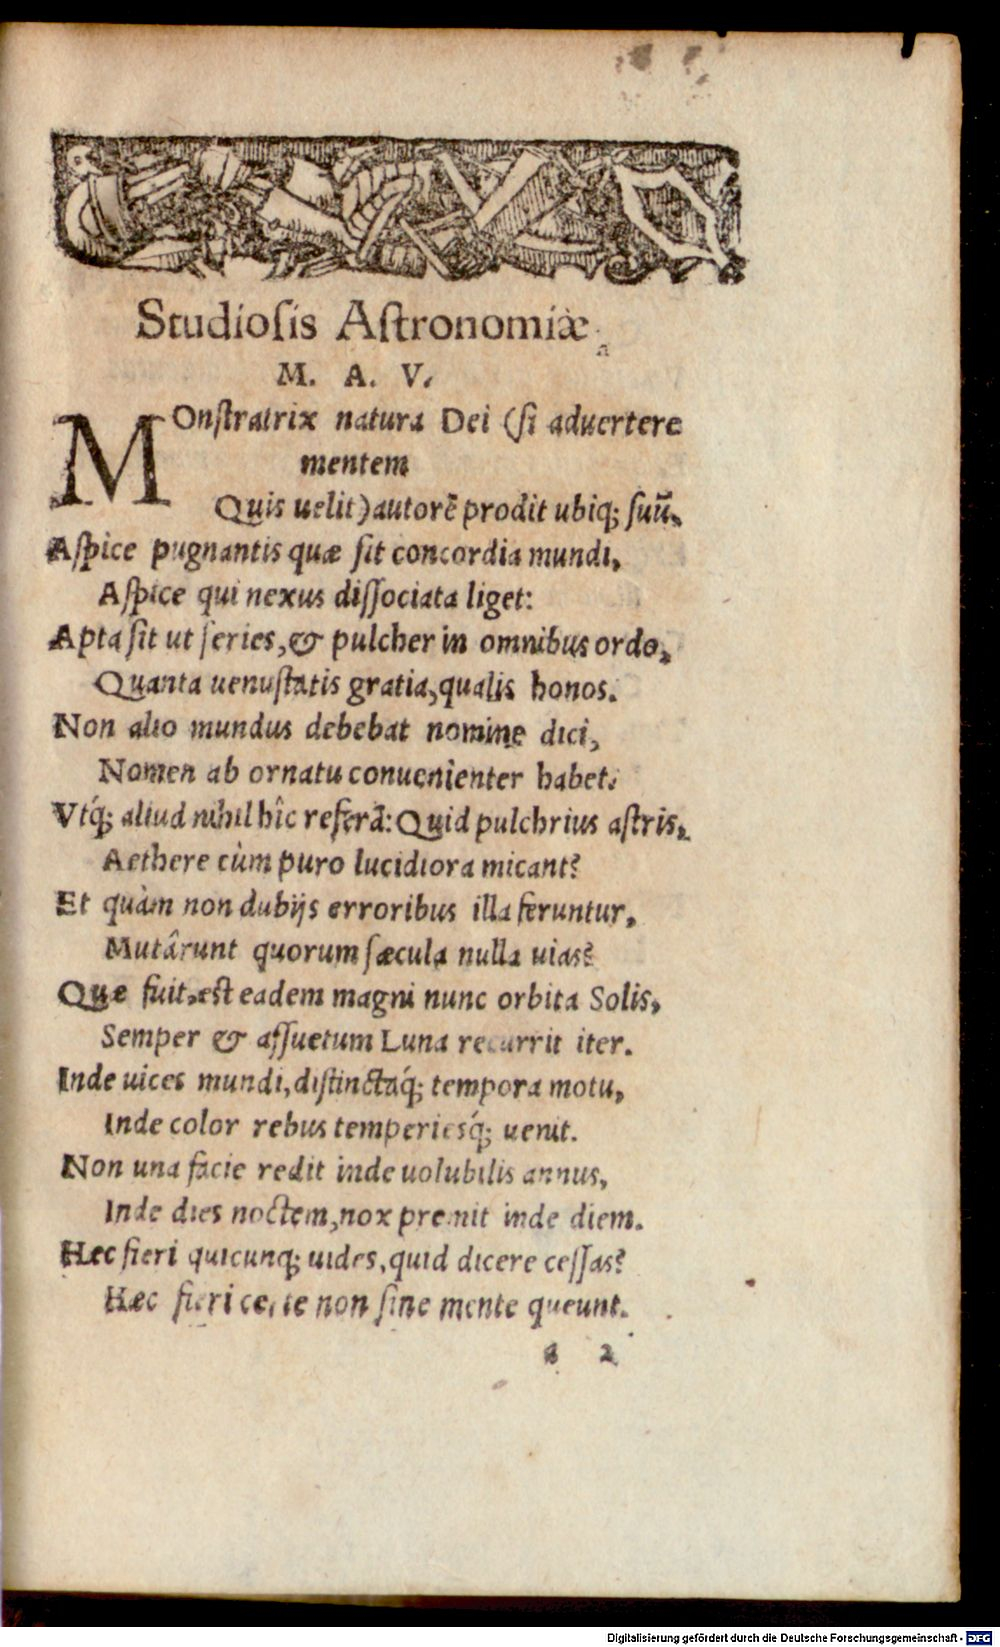 Studioſis Aſtronomiæ
M. A. V.
MOnſtratrix natura Dei (ſi aduertere
mentem
Quis uelit) autorē prodit ubiq; ſuū.
Aſpice pugnantis quæ ſit concordia mundi,
Aſpice qui nexus diſſociata liget:
Apta ſit ut ſeries, & pulcher in omnibus ordo,
Quanta uenuſtatis gratia, qualis honos.
Non alio mundus debebat nomine dici,
Nomen ab ornatu conuenienter habet.
Vtq́; aliud nihil hîc referā: Quid pulchrius aſtris,
Aethere cùm puro lucidiora micant?
Et quàm non dubijs erroribus illa feruntur,
Mutârunt quorum ſæcula nulla uias?
Quæ fuit, eſt eadem magni nunc orbita Solis,
Semper & aſſuetum Luna recurrit iter.
Inde uices mundi, diſtinctaq́; tempora motu,
Inde color rebus temperiesq́; uenit.
Non una facie redit inde uolubilis annus,
Inde dies noctem, nox premit inde diem.
Hæc fieri quicunq; uides, quid dicere ceſſas?
Hæc fieri certe non ſine mente queunt.
a 2
Digitalisierung gefördert durch die Deutsche Forschungsgemeinschaft - DFG